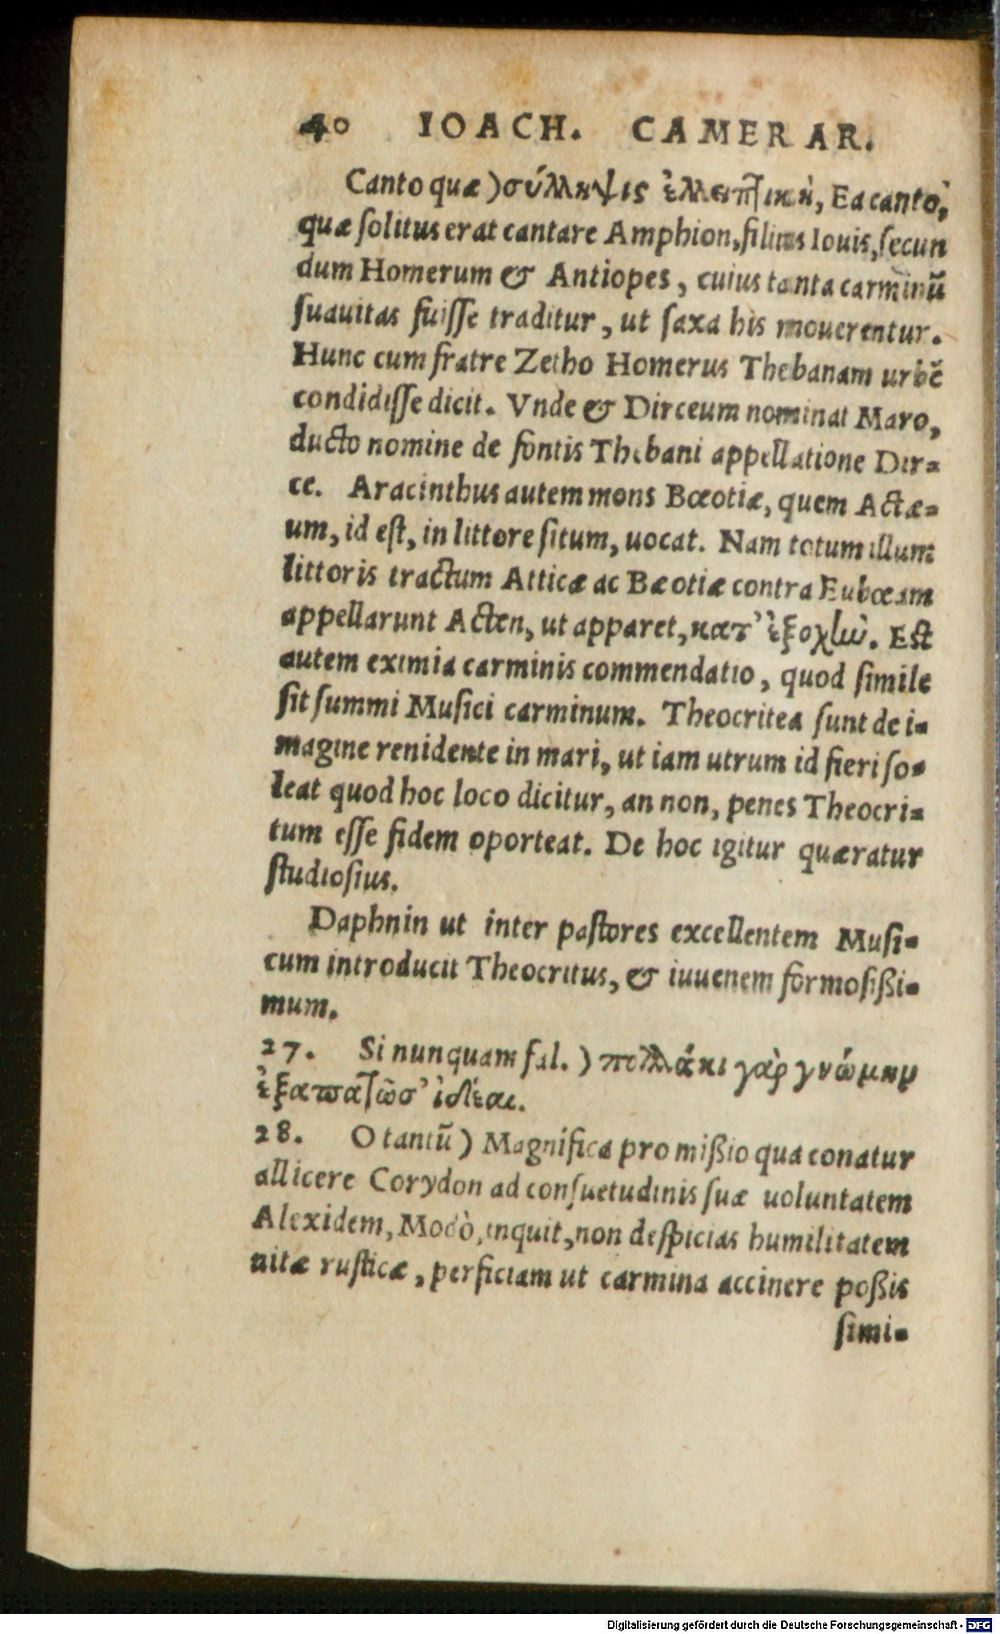 40 IOACH. CAMERAR.
Canto quæ) σύλληψις ἐλλειπτικὴ, Ea canto,
quæ ſolitus erat cantare Amphion, filius Iouis, ſecun
dum Homerum & Antiopes, cuius tanta carminũ
ſuauitas fuiſſe traditur, ut ſaxa his mouerentur.
Hunc cum fratre Zetho Homerus Thebanam urbẽ
condidiſſe dicit. Vnde & Dirceum nominat Maro,
ducto nomine de fontis Thebani appellatione Dir-
ce. Aracinthus autem mons Bœotiæ, quem Actæ-
um, id eſt, in littore ſitum, uocat. Nam totum illum
littoris tractum Atticæ ac Bæotiæ contra Eubœam
appellarunt Acten, ut apparet, κατ' ἐξοχὴν. Eſt
autem eximia carminis commendatio, quod ſimile
ſit ſummi Muſici carminum. Theocritea ſunt de i-
magine renidente in mari, ut iam utrum id fieri ſo-
leat quod hoc loco dicitur, an non, penes Theocri-
tum eſſe fidem oporteat. De hoc igitur quæratur
ſtudioſius.
Daphnin ut inter paſtores excellentem Muſi-
cum introducit Theocritus, & iuuenem formoſißi-
mum.
27. Si nunquam fal.) πολλάκι γὰρ γνώμην
ἐξαπατῶσ' ἰδέαι.
28. O tantũ) Magnifica promißio qua conatur
allicere Corydon ad conſuetudinis ſuæ uoluntatem
Alexidem, Modò, inquit, non deſpicias humilitatem
uitæ ruſticæ, perficiam ut carmina accinere poßis
ſimi-
Digitalisierung gefördert durch die Deutsche Forschungsgemeinschaft - DFG